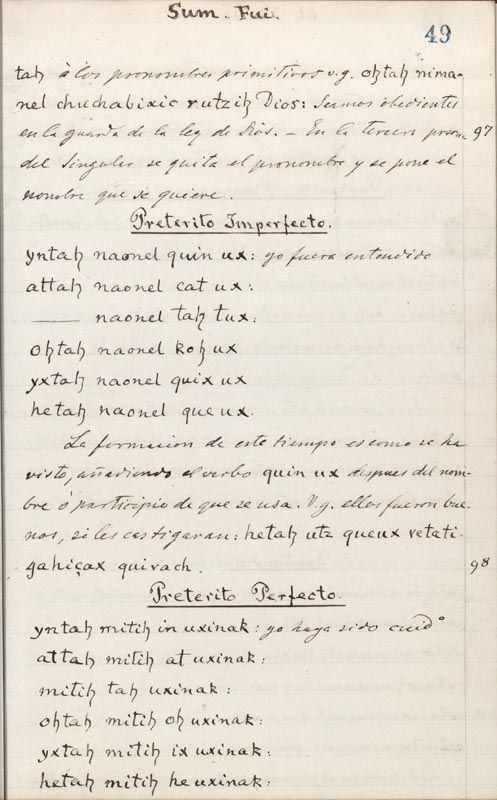 Sum. Fui.
49
taꜧ á los pronombres primitivos v.g. oꜧtaꜧ nima-
nel chuchabixic rutziꜧ Dios: Seamos obedientes
en la guarda de la ley de Dios. — En la tercera persona 97
del Singular se quita el pronombre y se pone el
nombre que se quiere.
Preterito Imperfecto.
yntaꜧ naonel quin ux: yo fuera entendido
attaꜧ naonel cat ux:
—— naonel taꜧ tux:
oꜧtaꜧ naonel koꜧ ux
yxtaꜧ naonel quix ux
hetaꜧ naonel que ux.
La formacion de este tiempo es como se ha
visto, añadiendo el verbo quin ux despues del nom-
bre ó participio de que se usa. V.g. ellos fueron bue-
nos, si les castigaran: hetaꜧ utz queux vetati-
gahiçax quivach. 98
Preterito Perfecto.
yntaꜧ mitiꜧ in uxinak: yo haya sido cuidº
attaꜧ mitiꜧ at uxinak:
mitiꜧ taꜧ uxinak:
oꜧtaꜧ mitiꜧ oꜧ uxinak:
yxtaꜧ mitiꜧ ix uxinak:
hetaꜧ mitiꜧ he uxinak: